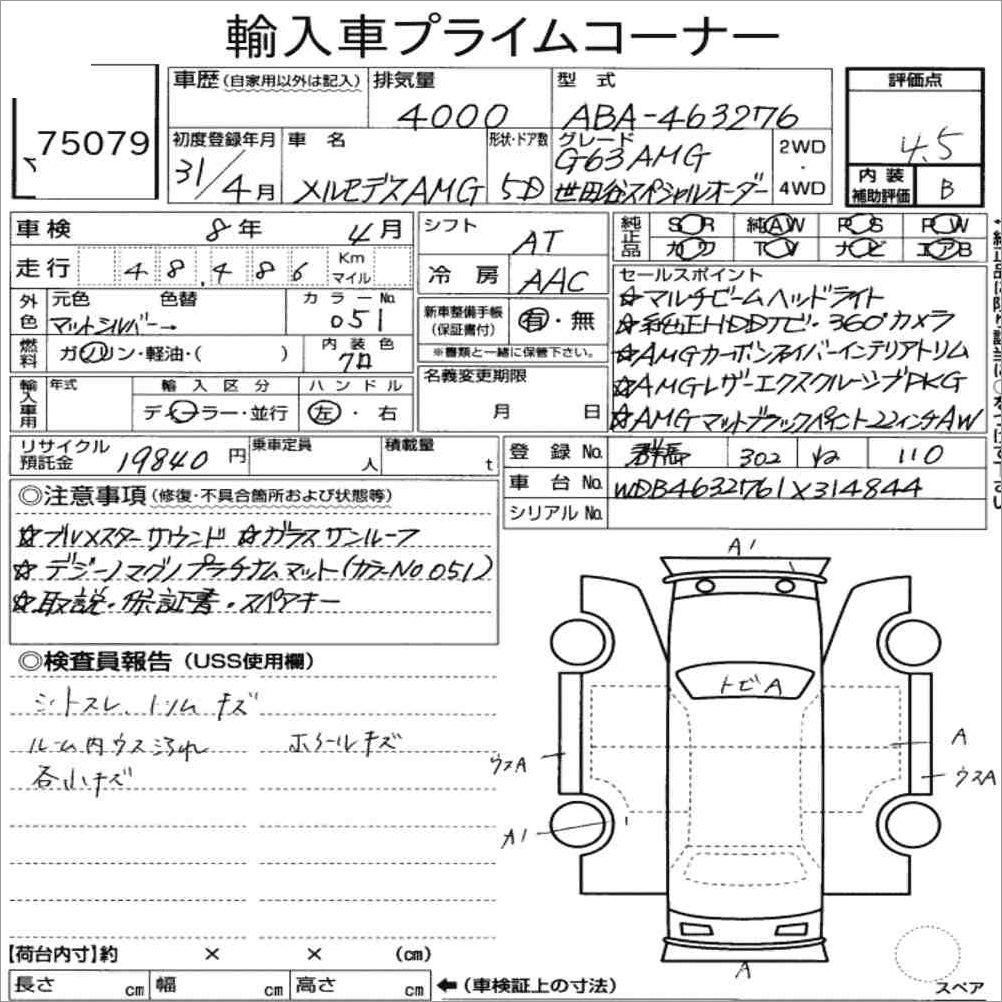 輸入車プライムコーナー
75079
車歴(自家用以外は記入) 排気量 4000 型式 ABA-463276 評価点 4.5
初度登録年月 31/4月 車名 メルセデスAMG 形状・ドア数 5D グレード G63 AMG 世田谷スペシャルオーダー 2WD・4WD
内装補助評価 B
車検 8年 4月 シフト AT
純正品 SR 純AW PS PW
カワ TV ナビ エアB
走行 48,486 Km マイル 冷房 AAC
セールスポイント
☆マルチビームヘッドライト
☆純正HDDナビ・360°カメラ
☆AMGカーボンファイバーインテリアトリム
☆AMGレザーエクスクルーシブPKG
☆AMGマットブラックペイント22インチAW
外色 元色 マットシルバー→ 色替 カラーNo. 051
新車整備手帳(保証書付) 有・無
※書類と一緒に保管下さい。
燃料 ガソリン・軽油・( ) 内装色 クロ
名義変更期限 月 日
輸入車用 年式 輸入区分 ディーラー・並行 ハンドル 左・右
リサイクル預託金 19840円 乗車定員 人 積載量 t
登録No. 302 ね 110
車台No. WDB4632761X314844
シリアルNo.
◎注意事項(修復・不具合箇所および状態等)
☆ブルメスターサウンド ☆ガラスサンルーフ
☆デジーノマグノプラチナムマット(カラーNo 051)
☆取説・保証書・スペアキー
◎検査員報告(USS使用欄)
シートスレ、トリムキズ
ルーム内ウスヨゴレ ホイールキズ
各小キズ
A1
トビA
ウスA
A
ウスA
A1
A
【荷台内寸】約 × × (cm)
長さ cm 幅 cm 高さ cm ←(車検証上の寸法)
スペア